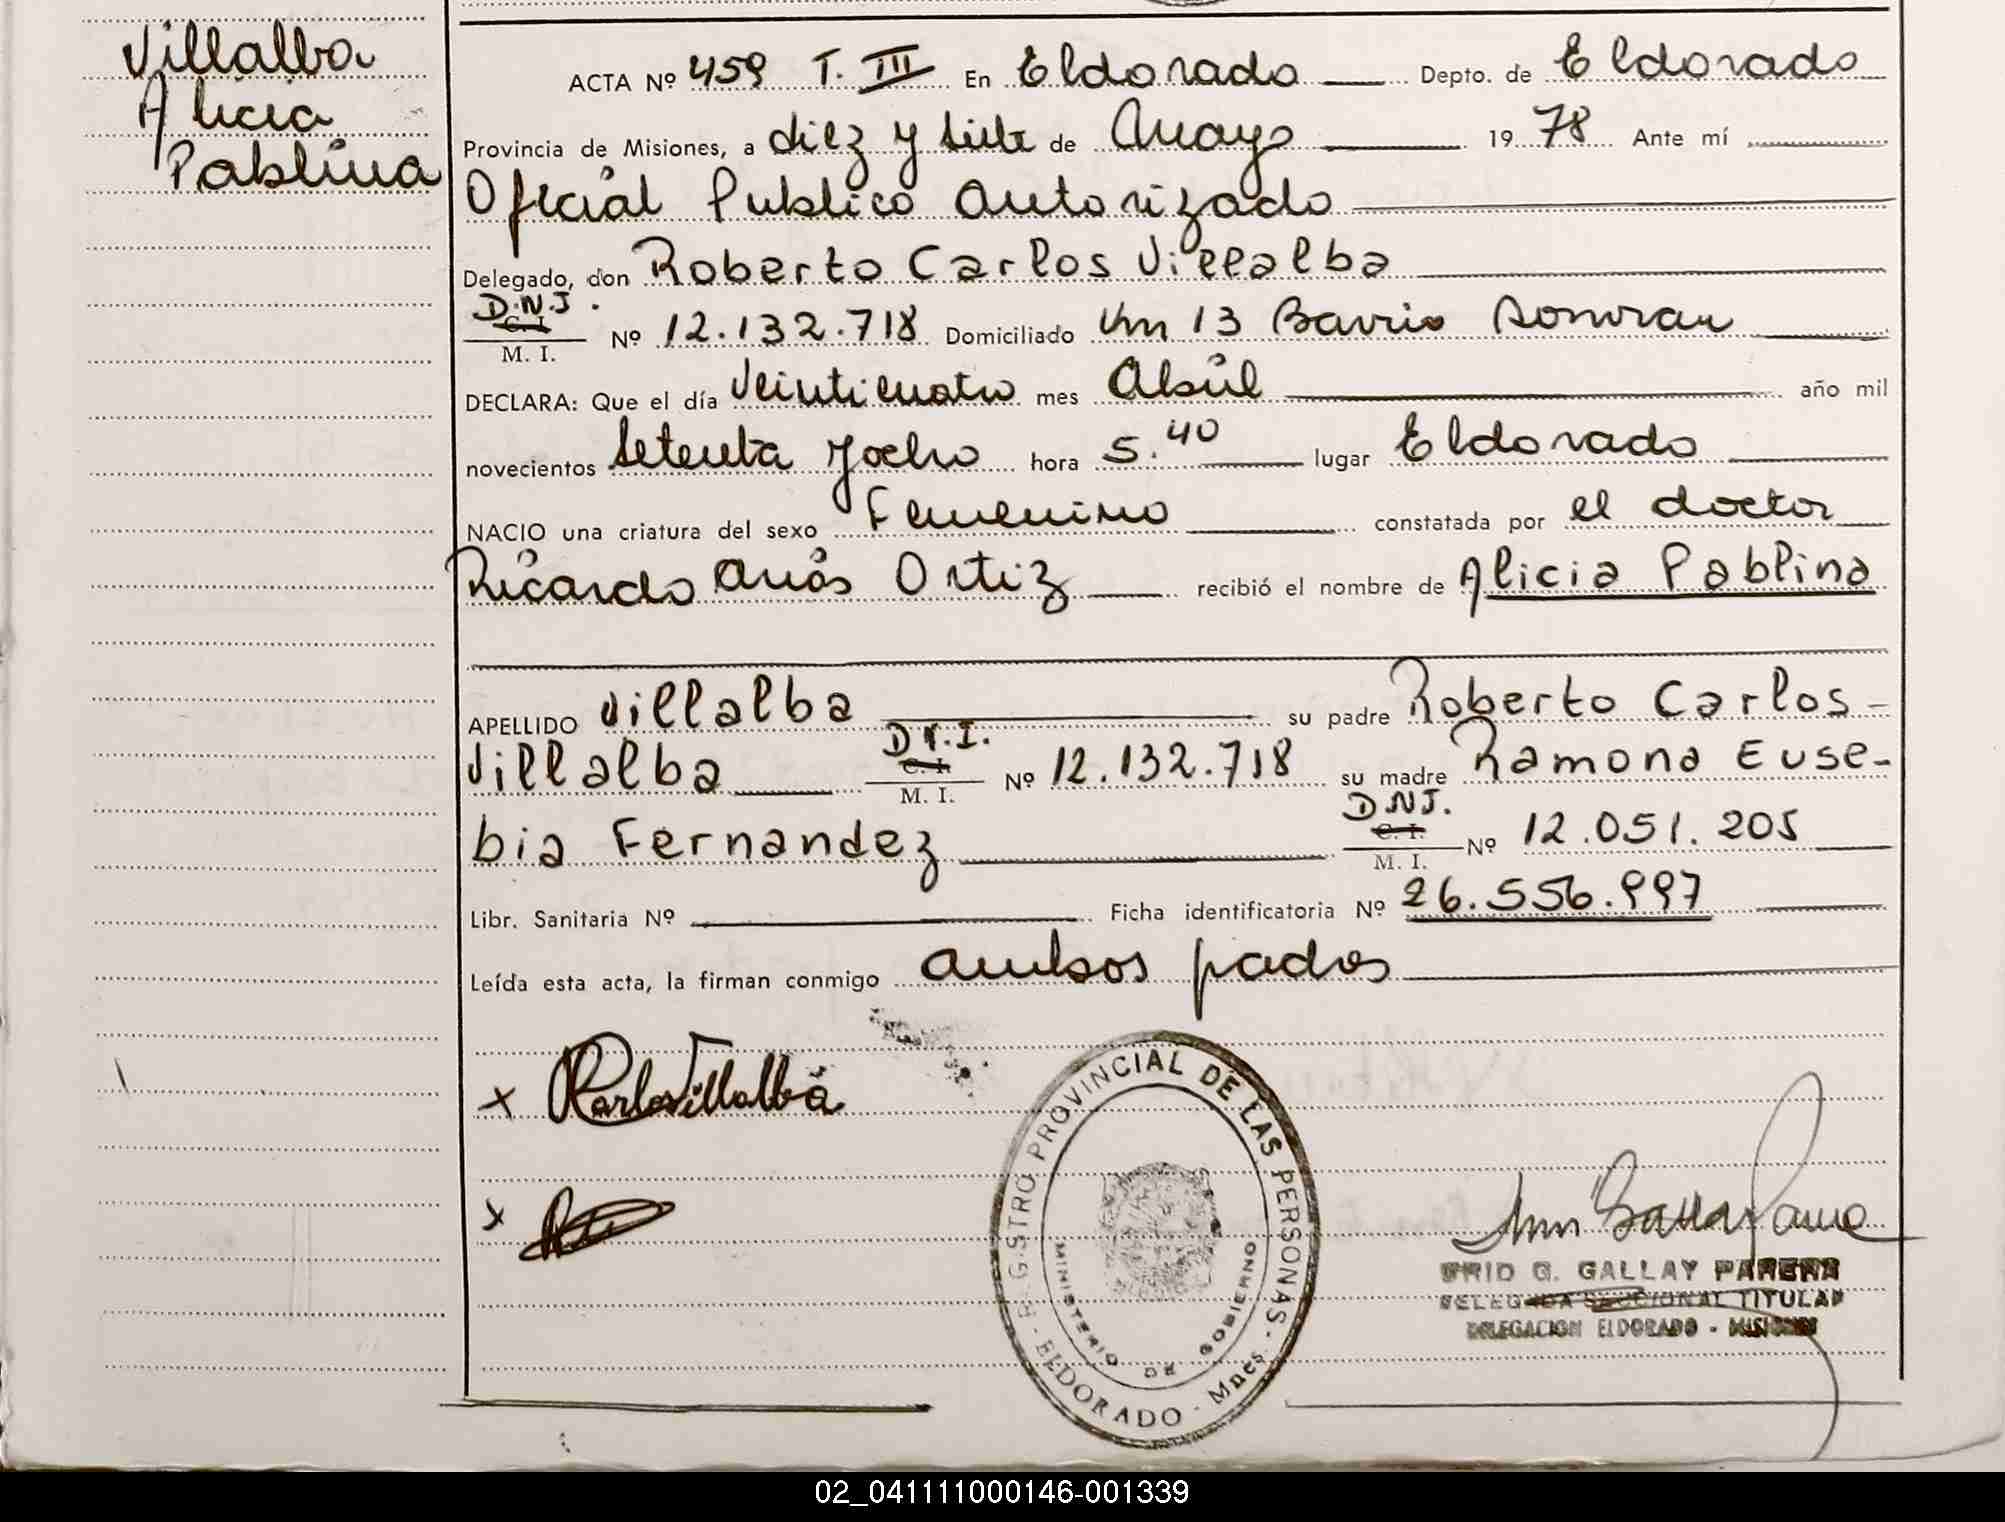 Villalba
Alicia
Pablina
ACTA Nº 459 T. III En Eldorado Depto. de Eldorado
Provincia de Misiones, a diez y siete de Mayo 19 78 Ante mí
Oficial Publico Autorizado
Delegado, don Roberto Carlos Villalba
D.N.I. C. I. M. I. Nº 12.132.718 Domiciliado Km 13 Barrio
DECLARA: Que el día Veinticuatro mes Abril año mil
novecientos Setenta y ocho hora 5.40 lugar Eldorado
NACIO una criatura del sexo Femenino constatada por el doctor
Ricardo Ortiz recibió el nombre de Alicia Pablina
APELLIDO Villalba su padre Roberto Carlos
Villalba D.N.I. C. I. M. I. Nº 12.132.718 su madre Ramona Euse-
bia Fernandez D.N.I. C. I. M. I. Nº 12.051.205
Libr. Sanitaria Nº Ficha identificatoria Nº 26.556.997
Leída esta acta, la firman conmigo ambos padres
x RCarlos Villalba
x
REGISTRO PROVINCIAL DE LAS PERSONAS - ELDORADO - Mnes.
MINISTERIO DE GOBIERNO
G. GALLAY PARERA
DELEGADA SECCIONAL TITULAR
DELEGACION ELDORADO - MISIONES
02_041111000146-001339